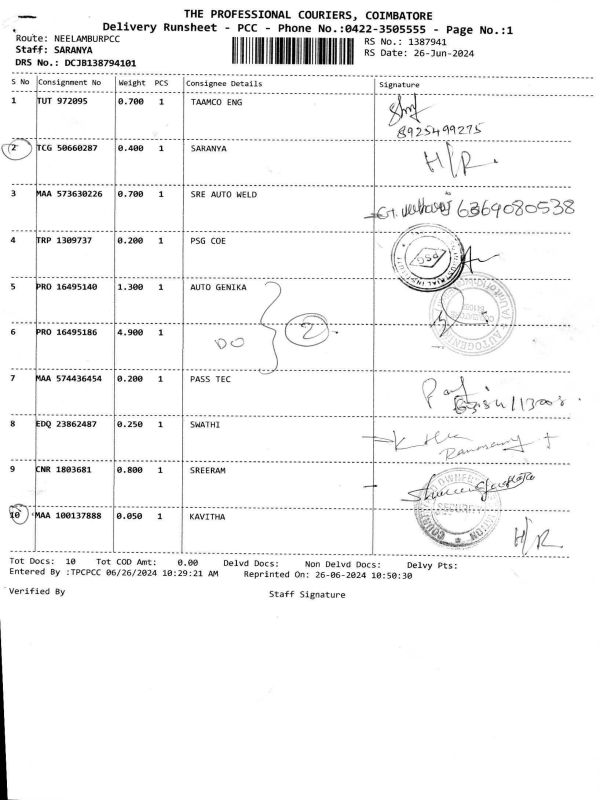 THE PROFESSIONAL COURIERS, COIMBATORE
Delivery Runsheet - PCC - Phone No.:0422-3505555 - Page No.:1
Route: NEELAMBURPCC RS No.: 1387941
Staff: SARANYA RS Date: 26-Jun-2024
DRS No.: DCJB138794101
S No Consignment No Weight PCS Consignee Details Signature
1 TUT 972095 0.700 1 TAAMCO ENG
8925499275
2 TCG 50660287 0.400 1 SARANYA H/R.
3 MAA 573630226 0.700 1 SRE AUTO WELD 6369080538
4 TRP 1309737 0.200 1 PSG COE PSG
5 PRO 16495140 1.300 1 AUTO GENIKA
DO 2
6 PRO 16495186 4.900 1
7 MAA 574436454 0.200 1 PASS TEC
8 EDQ 23862487 0.250 1 SWATHI
9 CNR 1803681 0.800 1 SREERAM
10 MAA 100137888 0.050 1 KAVITHA H/R
Tot Docs: 10 Tot COD Amt: 0.00 Delvd Docs: Non Delvd Docs: Delvy Pts:
Entered By :TPCPCC 06/26/2024 10:29:21 AM Reprinted On: 26-06-2024 10:50:30
Verified By Staff Signature